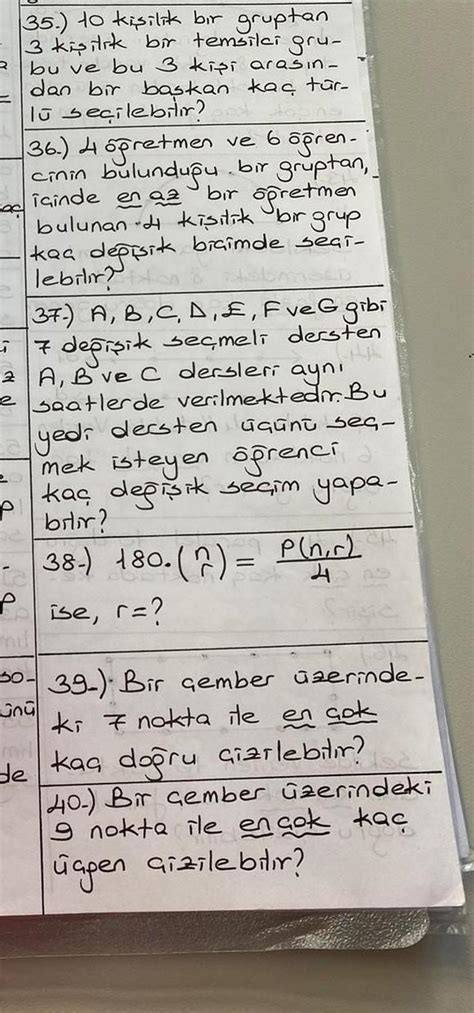 35.) 10 kişilik bir gruptan
3 kişilik bir temsilci gru-
bu ve bu 3 kişi arasın-
dan bir başkan kaç tür-
lü seçilebilir?
36.) 4 öğretmen ve 6 öğren-
cinin bulunduğu bir gruptan,
içinde en az bir öğretmen
bulunan 4 kişilik bir grup
kaç değişik biçimde seçi-
lebilir?
37.) A, B, C, D, E, F ve G gibi
7 değişik seçmeli dersten
A, B ve C dersleri aynı
saatlerde verilmektedir. Bu
yedi dersten üçünü seç-
mek isteyen öğrenci
kaç değişik seçim yapa-
bilir?
38-) 180.(n r) = P(n,r)/4
ise, r=?
39-) Bir çember üzerinde-
ki 7 nokta ile en çok
kaç doğru çizilebilir?
40.) Bir çember üzerindeki
9 nokta ile en çok kaç
üçgen çizilebilir?